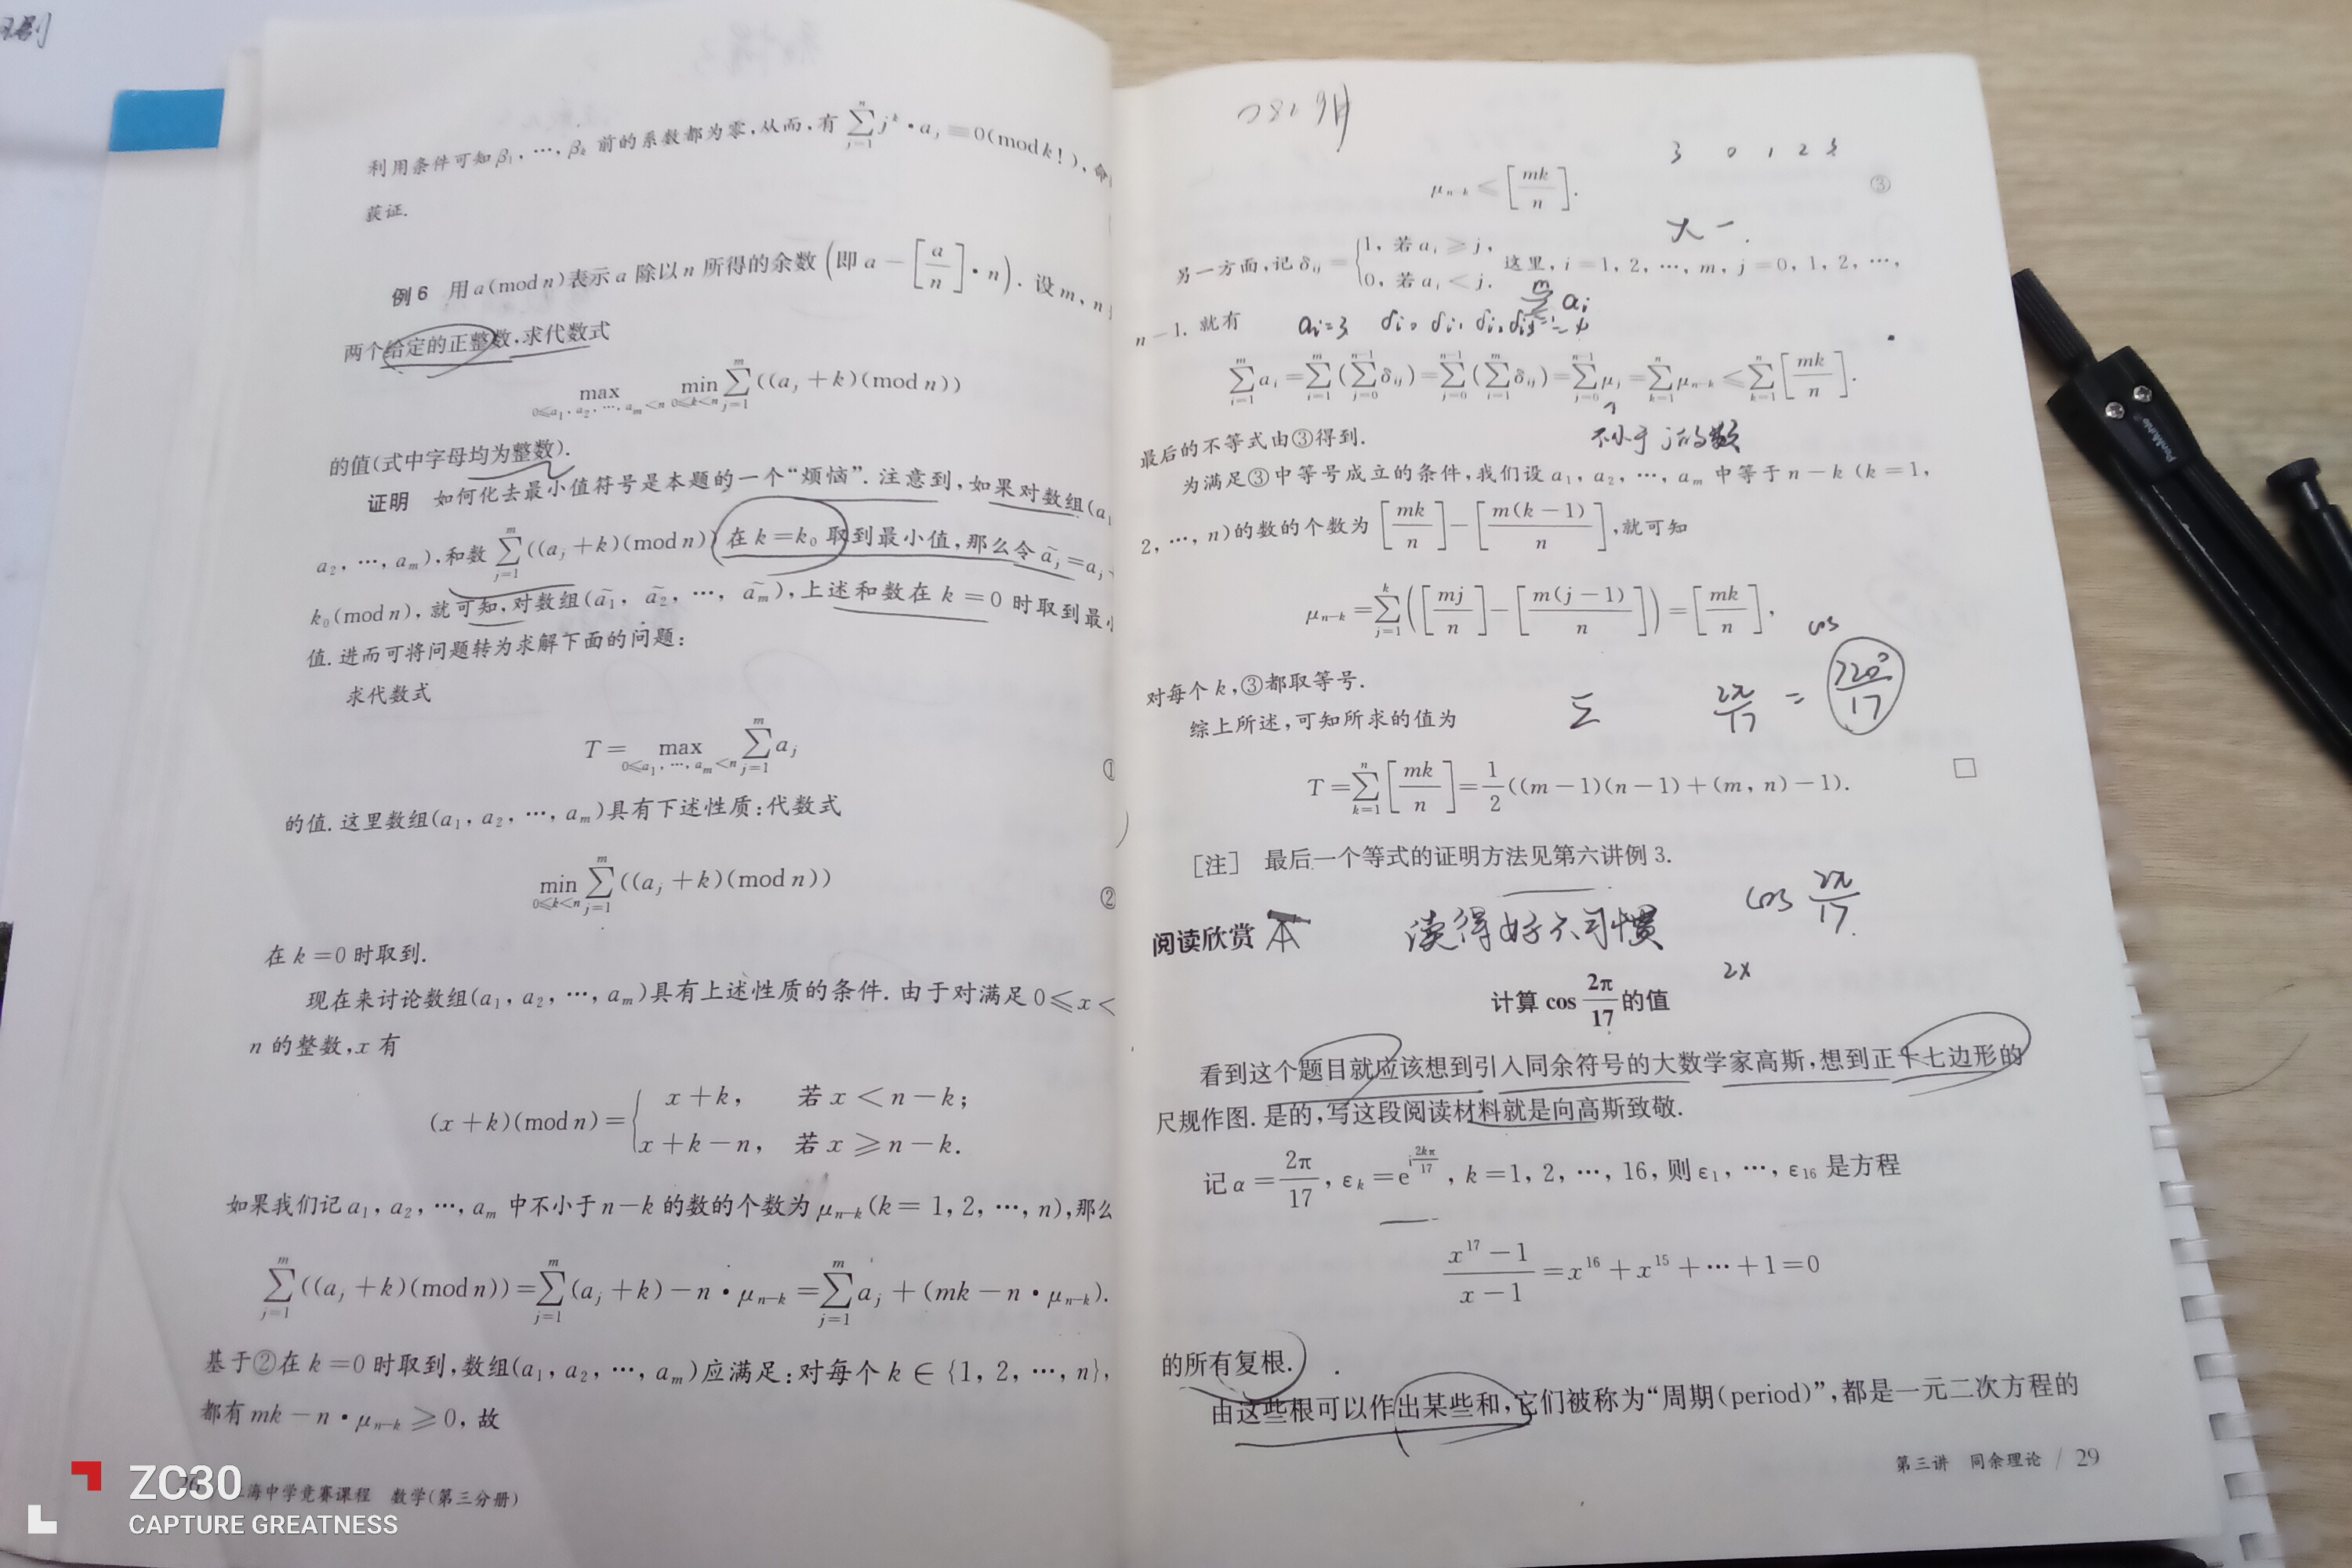 利用条件可知β₁,…,βₖ前的系数都为零,从而,有 $\sum_{j=1}^{n} j^k \cdot a_j \equiv 0 (\mod k!)$,命
获证.
例6 用a(mod n)表示a除以n所得的余数(即 $a-\left[\frac{a}{n}\right]\cdot n$). 设m,n
两个给定的正整数,求代数式
$\max_{0\le a_1,a_2,\cdots,a_m<n} \min_{0\le k<n} \sum_{j=1}^{m}((a_j+k)(\mod n))$
的值(式中字母均为整数).
证明 如何化去最小值符号是本题的一个“烦恼”. 注意到,如果对数组(a₁
a₂,…,aₘ),和数 $\sum_{j=1}^{m}((a_j+k)(\mod n))$ 在k=k₀取到最小值,那么令 $\tilde{a_j}=a_j+$
k₀(mod n),就可知,对数组($\tilde{a_1}$,$\tilde{a_2}$,…,$\tilde{a_m}$),上述和数在k=0时取到最小
值.进而可将问题转为求解下面的问题:
求代数式
$T=\max_{0\le a_1,\cdots,a_m<n} \sum_{j=1}^{m}a_j$ ①
的值.这里数组(a₁,a₂,…,aₘ)具有下述性质:代数式
$\min_{0\le k<n} \sum_{j=1}^{m}((a_j+k)(\mod n))$ ②
在k=0时取到.
现在来讨论数组(a₁,a₂,…,aₘ)具有上述性质的条件. 由于对满足0≤x<
n的整数,x有
$(x+k)(\mod n)=\begin{cases}x+k, & 若x<n-k;\\ x+k-n, & 若x\ge n-k.\end{cases}$
如果我们记a₁,a₂,…,aₘ中不小于n-k的数的个数为μₙ₋ₖ(k=1,2,…,n),那么
$\sum_{j=1}^{m}((a_j+k)(\mod n))=\sum_{j=1}^{m}(a_j+k)-n\cdot\mu_{n-k}=\sum_{j=1}^{m}a_j+(mk-n\cdot\mu_{n-k}).$
基于②在k=0时取到,数组(a₁,a₂,…,aₘ)应满足:对每个k∈{1,2,…,n},
都有mk-n·μₙ₋ₖ≥0,故
海中学竞赛课程 数学(第三分册)
3 0 1 2 3
$\mu_{n-k}\le\left[\frac{mk}{n}\right].$ ③
大一.
另一方面,记 $\delta_{ij}=\begin{cases}1, 若a_i\ge j,\\ 0, 若a_i<j.\end{cases}$ 这里,i=1,2,…,m,j=0,1,2,…,
n-1. 就有
aᵢ=3
$\sum_{i=1}^{m}a_i=\sum_{i=1}^{m}(\sum_{j=0}^{n-1}\delta_{ij})=\sum_{j=0}^{n-1}(\sum_{i=1}^{m}\delta_{ij})=\sum_{j=0}^{n-1}\mu_j=\sum_{k=1}^{n}\mu_{n-k}\le\sum_{k=1}^{n}\left[\frac{mk}{n}\right].$
最后的不等式由③得到.
不小于j的数
为满足③中等号成立的条件,我们设a₁,a₂,…,aₘ中等于n-k(k=1,
2,…,n)的数的个数为 $\left[\frac{mk}{n}\right]-\left[\frac{m(k-1)}{n}\right]$,就可知
$\mu_{n-k}=\sum_{j=1}^{k}\left(\left[\frac{mj}{n}\right]-\left[\frac{m(j-1)}{n}\right]\right)=\left[\frac{mk}{n}\right],$
cos
对每个k,③都取等号.
综上所述,可知所求的值为
$\frac{2\pi}{17}=\frac{720°}{17}$
$T=\sum_{k=1}^{n}\left[\frac{mk}{n}\right]=\frac{1}{2}((m-1)(n-1)+(m,n)-1).$ □
[注] 最后一个等式的证明方法见第六讲例3.
$\cos\frac{2\pi}{17}$
阅读欣赏
2x
计算 $\cos\frac{2\pi}{17}$ 的值
看到这个题目就应该想到引入同余符号的大数学家高斯,想到正十七边形的
尺规作图. 是的,写这段阅读材料就是向高斯致敬.
记 $\alpha=\frac{2\pi}{17}$,$\varepsilon_k=e^{i\frac{2k\pi}{17}}$,k=1,2,…,16,则ε₁,…,ε₁₆是方程
$\frac{x^{17}-1}{x-1}=x^{16}+x^{15}+\cdots+1=0$
的所有复根.
由这些根可以作出某些和,它们被称为“周期(period)”,都是一元二次方程的
第三讲 同余理论 / 29
ZC30
CAPTURE GREATNESS